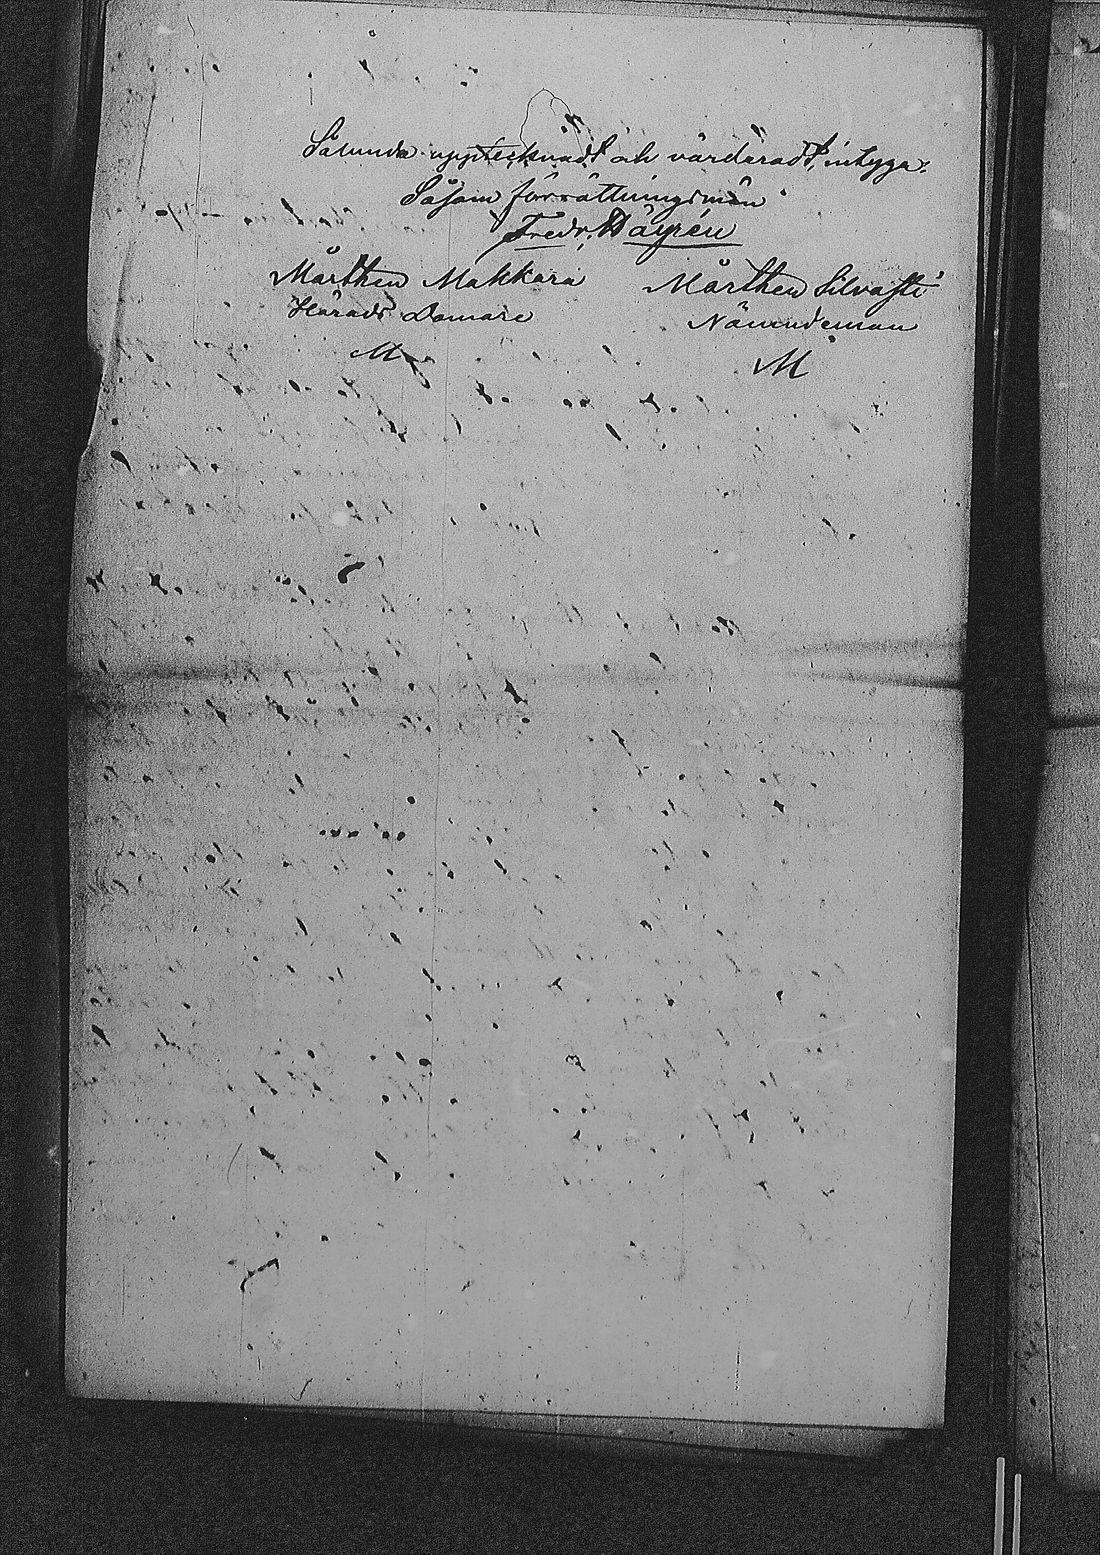 Sålunda upptecknadt och värderadt, intyga:
Såsom förrättningsmän
Fredr. Häyrén
Mårthen Makkara Mårthen Silvasti
Härads Domare Nämndeman
M M